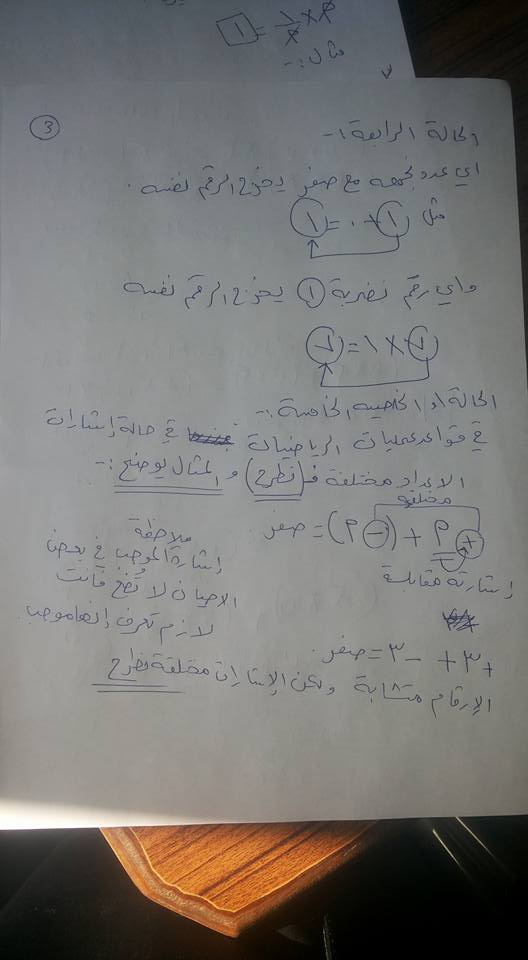 م × ١/م = ١
مثال :-
3
الحالة الرابعة :-
اي عدد نجمعه مع صفر يخرج الرقم نفسه .
مثل ١ + ٠ = ١
واي رقم نضربة ١ يخرج الرقم نفسه
٧ × ١ = ٧
الحالة او الخاصية الخامسة :-
في قواعد عمليات الرياضيات في حالة إشارات
الاعداد مختلفة فـ (نطرح) والمثال يوضح :-
مختلفه
+ م + (- م) = صفر
إشارته مقابلة
ملاحظة
إشارة الموجب في بعض
الاحيان لا تُضع فأنت
لازم تعرف إنها موجب
+ ٣ + - ٣ = صفر .
الارقام متشابة ولكن الإشارات مختلفة نطرح